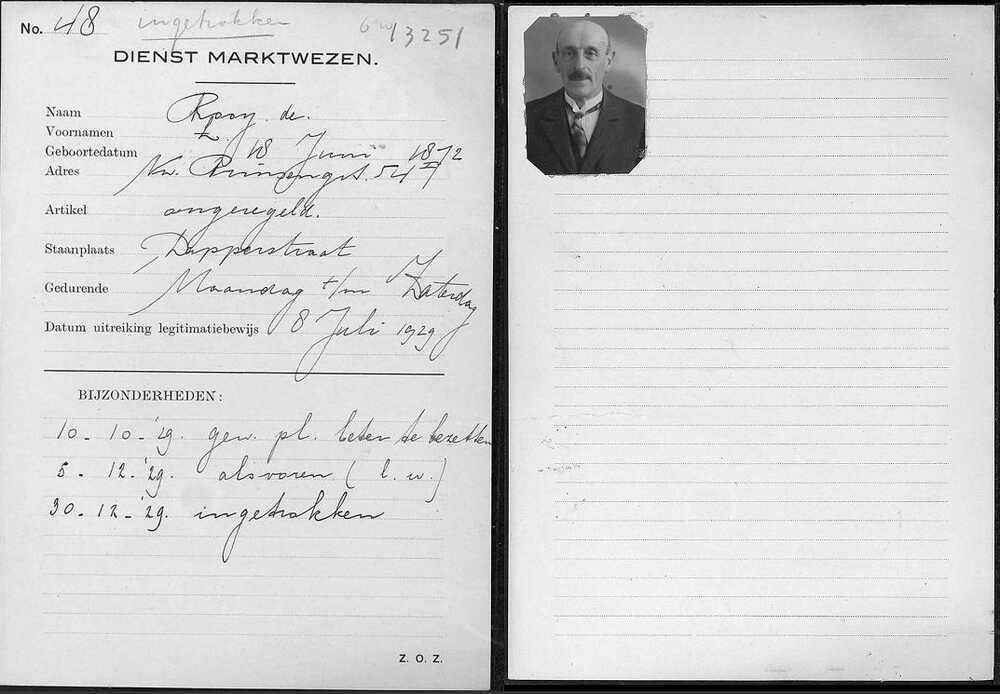 No. 48 ingetrokken 13251
DIENST MARKTWEZEN.
Naam Rooy. de.
Voornamen L.
Geboortedatum 18 Juni 1872
Adres Nw. Prinsengrt. 54 II
Artikel ongeregeld.
Staanplaats Dapperstraat
Gedurende Maandag t/m Zaterdag
Datum uitreiking legitimatiebewijs 8 Juli 1929
BIJZONDERHEDEN:
10 - 10 - '29. gew. pl. beter te bezetten
5 - 12 - '29. alsvoren ( l. w. )
30 - 12 - '29. ingetrokken
Z. O. Z.